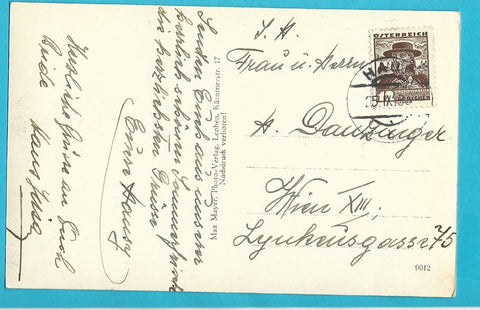 Herzliche Grüße an Euch
beide Hans
Senden Euch aus unserer
herrlich schönen Sommerfrische
die herzlichsten Grüße
Eure Hansy
Max Mayer, Photo-Verlag, Leoben, Kärntnerstr. 17
Nachdruck verboten!
S. H.
Frau u. Herrn
H. Danzinger
Wien XIII
Lynkeusgasse 75
ÖSTERREICH
9012